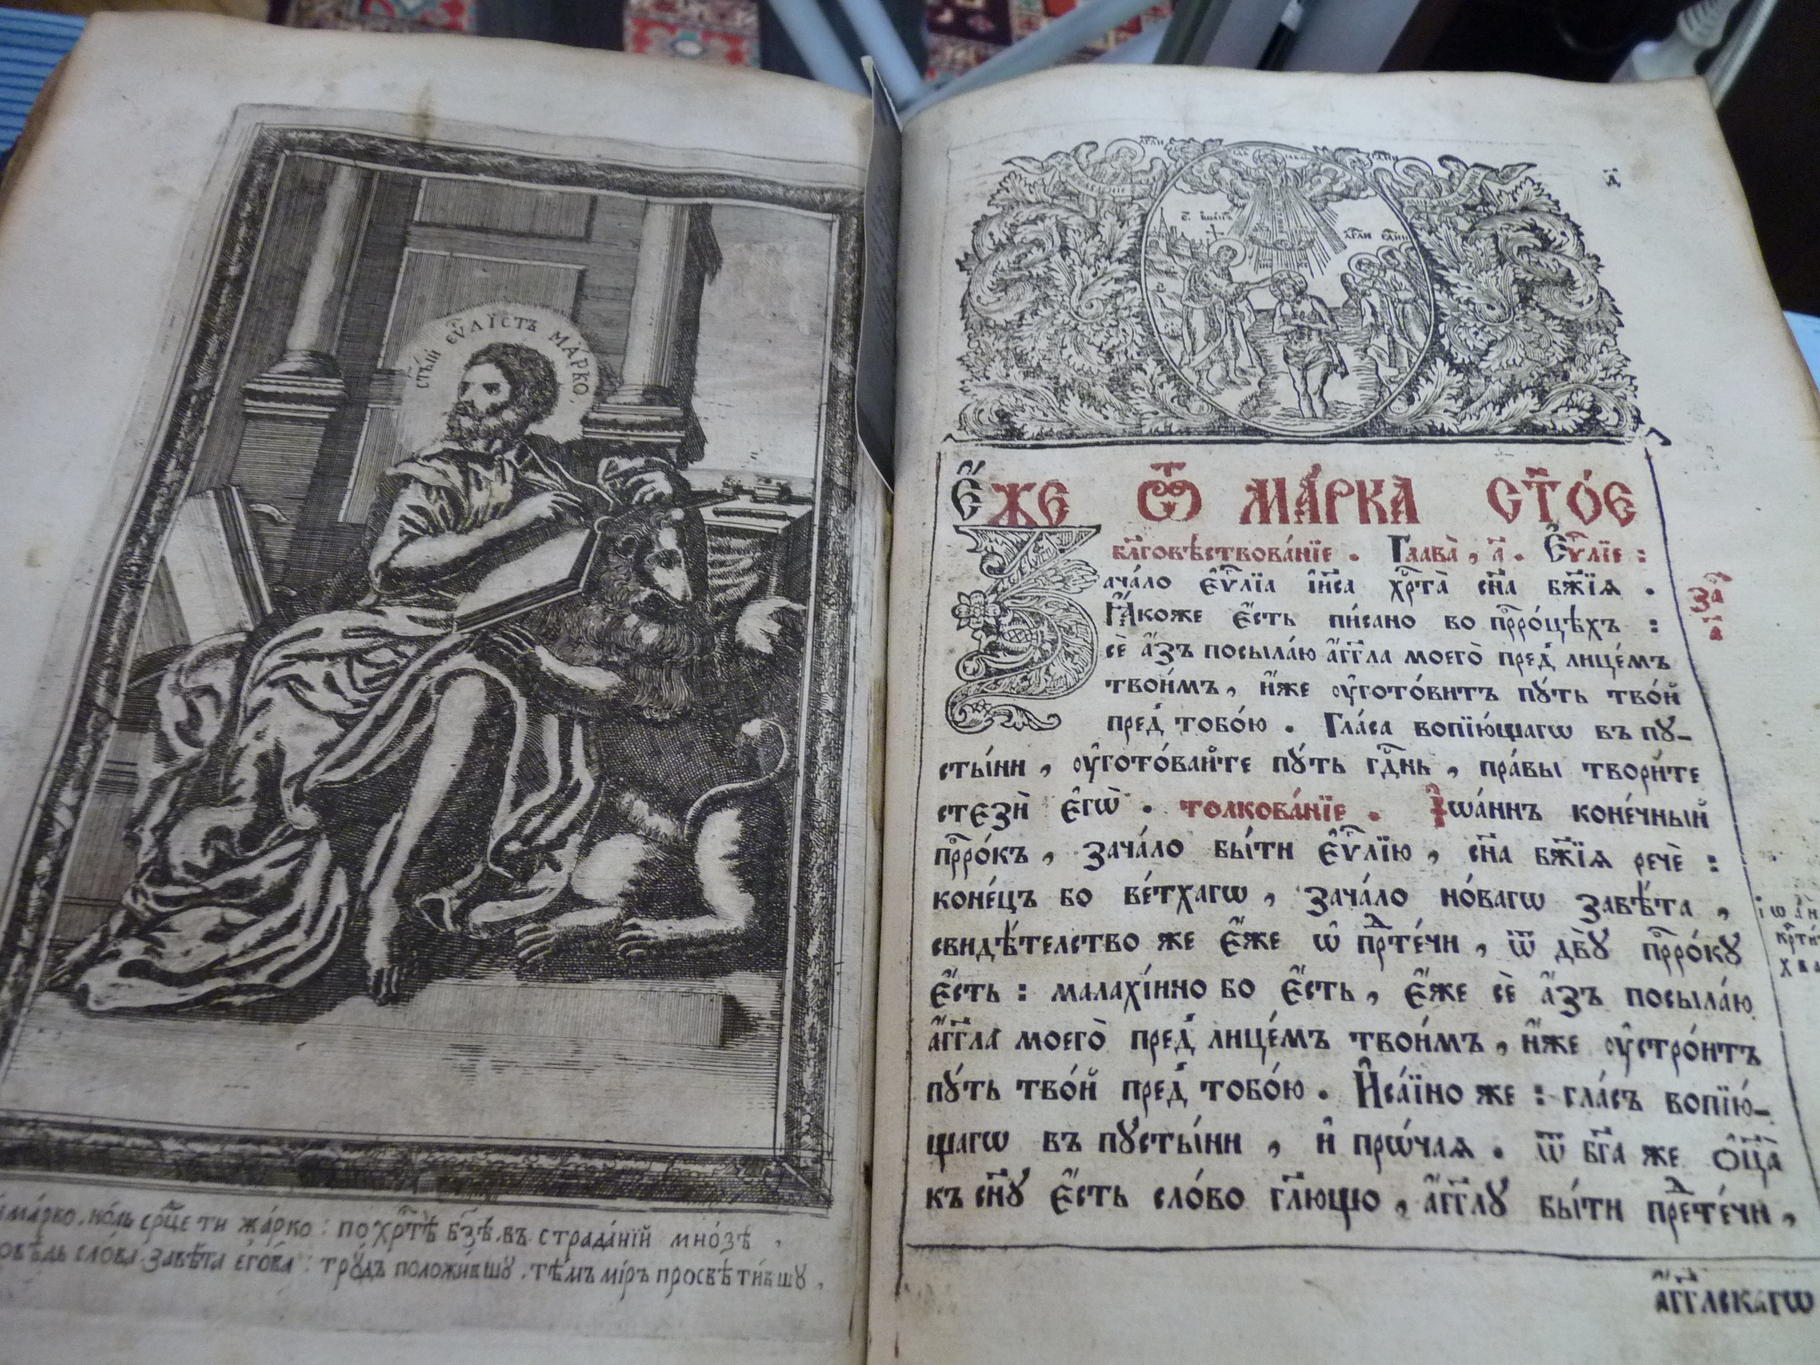 СТ҃ЫЙ ЕѴ҃ЛІСТЪ МА́РКО.
ма́рко, но́ль ср҃це ти жа́рко: по хр҃тѣ бз҃ѣ, въ страда́нїй мно́зѣ,
сло́ва завѣ́та его́ва: тру́дъ положи́вшу, тѣ́мъ мі́ръ просвѣти́вшу,
д҃
Е҆́же ѿ ма́рка ст҃о́е
бл҃говѣ́ствова́нїе. Глава̀, а҃. Е҆ѵ҃лїе:
Зача́ло є҆ѵ҃лїа і҆и҃са хр҃та̀ сн҃а бж҃їѧ.
Ꙗ҆́коже є҆́сть пи́сано во прⷪ҇ро́цѣхъ:
сѐ а҆́зъ посыла́ю а҆́гг҃ла моего̀ пред̾ лице́мъ
твои́мъ, и҆́же ᲂу҆гото́витъ пу́ть тво́й
пред̾ тобо́ю. Гла́са вопїю́щагѡ въ пу-
сты́ни, ᲂу҆гото́вайте пу́ть гдⷭ҇нь, пра́вы твори́те
стезѝ є҆гѡ̀. толкова́нїе. І҆ѡа́ннъ коне́чный
прⷪ҇ро́къ, зача́ло бы́ти є҆ѵ҃лїю, сн҃а бж҃їѧ речѐ:
коне́цъ бо ве́тхагѡ, зача́ло но́вагѡ завѣ́та,
свидѣ́телство же є҆́же ѡ҆ прⷣте́чи, ѿ двꙋ̀ прⷪ҇ро́кꙋ
є҆́сть: малахі́ино бо є҆́сть, є҆́же сѐ а҆́зъ посыла́ю
а҆́гг҃ла моего̀ пред̾ лице́мъ твои́мъ, и҆́же ᲂу҆стро́итъ
пу́ть тво́й пред̾ тобо́ю. И҆са́їно же: гла́съ вопїю́-
щагѡ въ пꙋсты́ни, и҆ прѡ́чаѧ. ѿ бг҃а же ѻ҆ц҃а̀
къ сн҃ꙋ є҆́сть сло́во гл҃ющо, а҆́гг҃лꙋ бы́ти прⷣете́чи,
за҃
а҃
а҆́гг҃лскагѡ